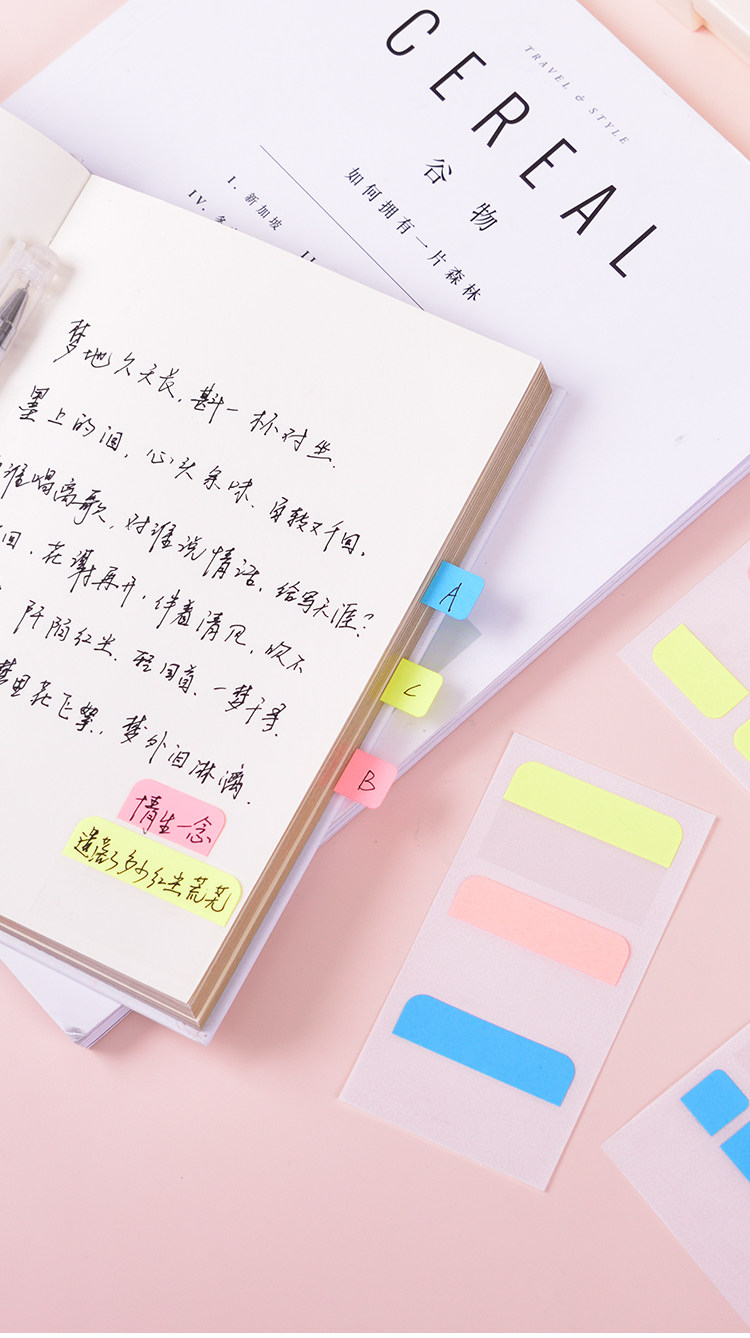 CEREAL
TRAVEL & STYLE
谷物
如何拥有一片森林
I. 新加坡
IV.
II
梦地久天长，斟一杯对坐.
墨上的泪，心头余味、百转又千回，
谁唱离歌，对谁说情话，给写天涯？
回，花谢再开，伴着清风，吹不
阡陌红尘、轻回首、一梦千寻.
梦里花飞絮，梦外泪淋漓.
情生一念
遗落了多少红尘荒芜
A
C
B